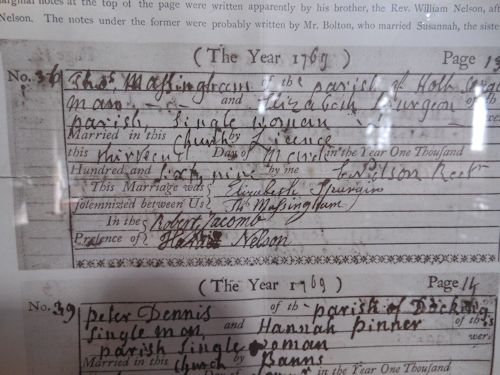 marginal notes at the top of the page were written apparently by his brother, the Rev. William Nelson, aft
Nelson. The notes under the former were probably written by Mr. Bolton, who married Susannah, the siste
(The Year 1769) Page 13
No. 36 Thos. Massingham of the parish of Holt single
man and Elizabeth Spurgeon of the
parish, Single woman were
Married in this Church by Licence
this thirteenth Day of March in the Year One Thousand
Hundred and Sixty nine by me
This Marriage was Elizabeth Spurgin
solemnized between Us Ths Massingham
In the Robert Jacomb
Presence of Nelson
(The Year 1769) Page 14
No. 39 Peter Dennis of the parish of Docking
Single man, and Hannah pinner of this
parish Single woman were
Married in this Church by Banns
in the Year One Thousand